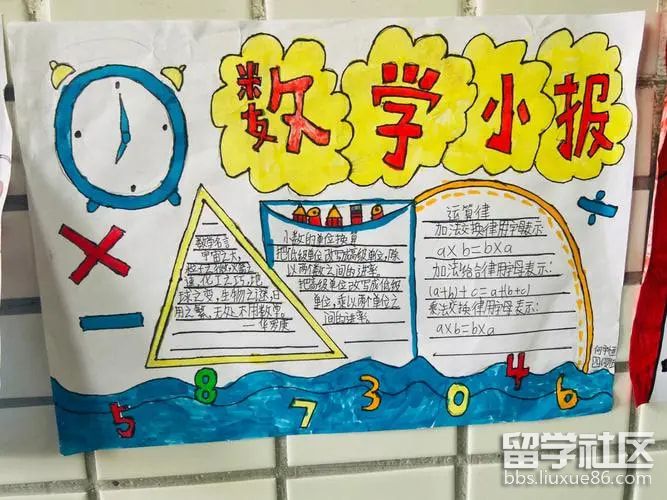 数学小报
数学名言
宇宙之大,
粒子之微,火箭之速,
化工之巧,地
球之变,生物之谜,日
用之繁,无处不用数学。
——华罗庚
小数的单位换算
把低级单位改写成高级单位,除
以两个数之间的进率。
把高级单位改写成低级
单位,乘以两个单位之
间的进率。
运算律
加法交换律用字母表示:
a×b=b×a
加法结合律用字母表示:
(a+b)+c=a+(b+c)
乘法交换律用字母表示:
a×b=b×a
×
÷
−
5 8 7 3 0 4 6
留学社区
bbs.liuxue86.com